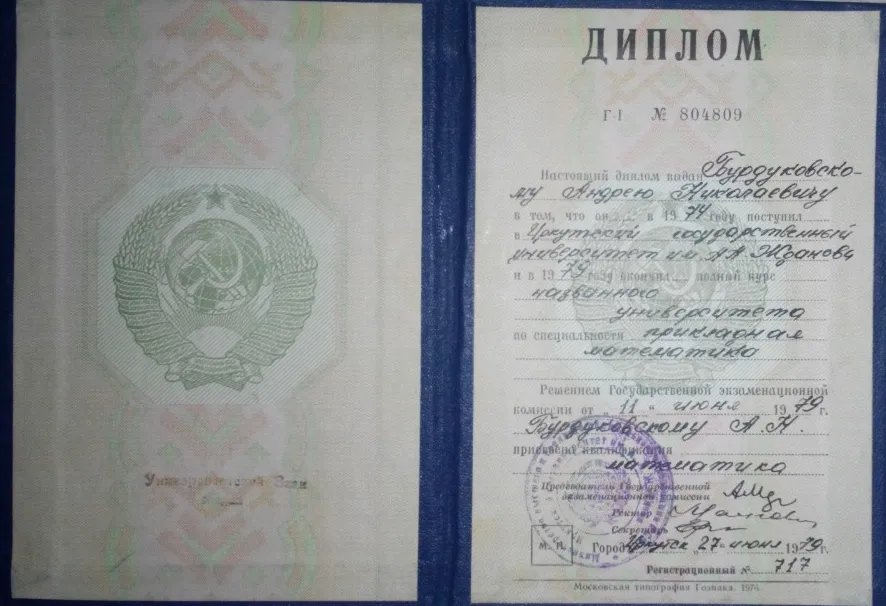 Университетский Знак
ДИПЛОМ
Г-I № 804809
Настоящий диплом выдан Бурдуковско-
му Андрею Николаевичу
в том, что он в 1974 году поступил
в Иркутский государственный
университет им. А.А. Жданова
и в 1979 году окончил полный курс
названного
университета
по специальности прикладная
математика
Решением Государственной экзаменационной
комиссии от „11“ июня 1979 г.
Бурдуковскому А.Н.
присвоена квалификация
математика
Председатель Государственной
экзаменационной комиссии
Ректор
Секретарь
М. П. Город Иркутск 27 июня 1979 г.
Регистрационный № 717
Московская типография Гознака. 1974.